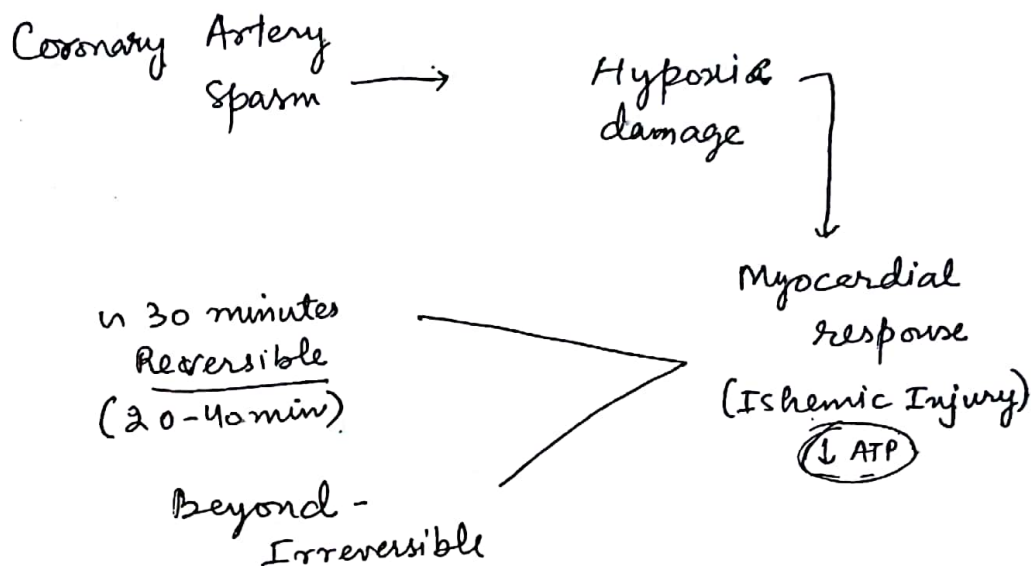 Coronary Artery
Spasm
Hypoxia
damage
Myocardial
response
(Ishemic Injury)
↓ ATP
~ 30 minutes
Reversible
(20-40min)
Beyond -
Irreversible